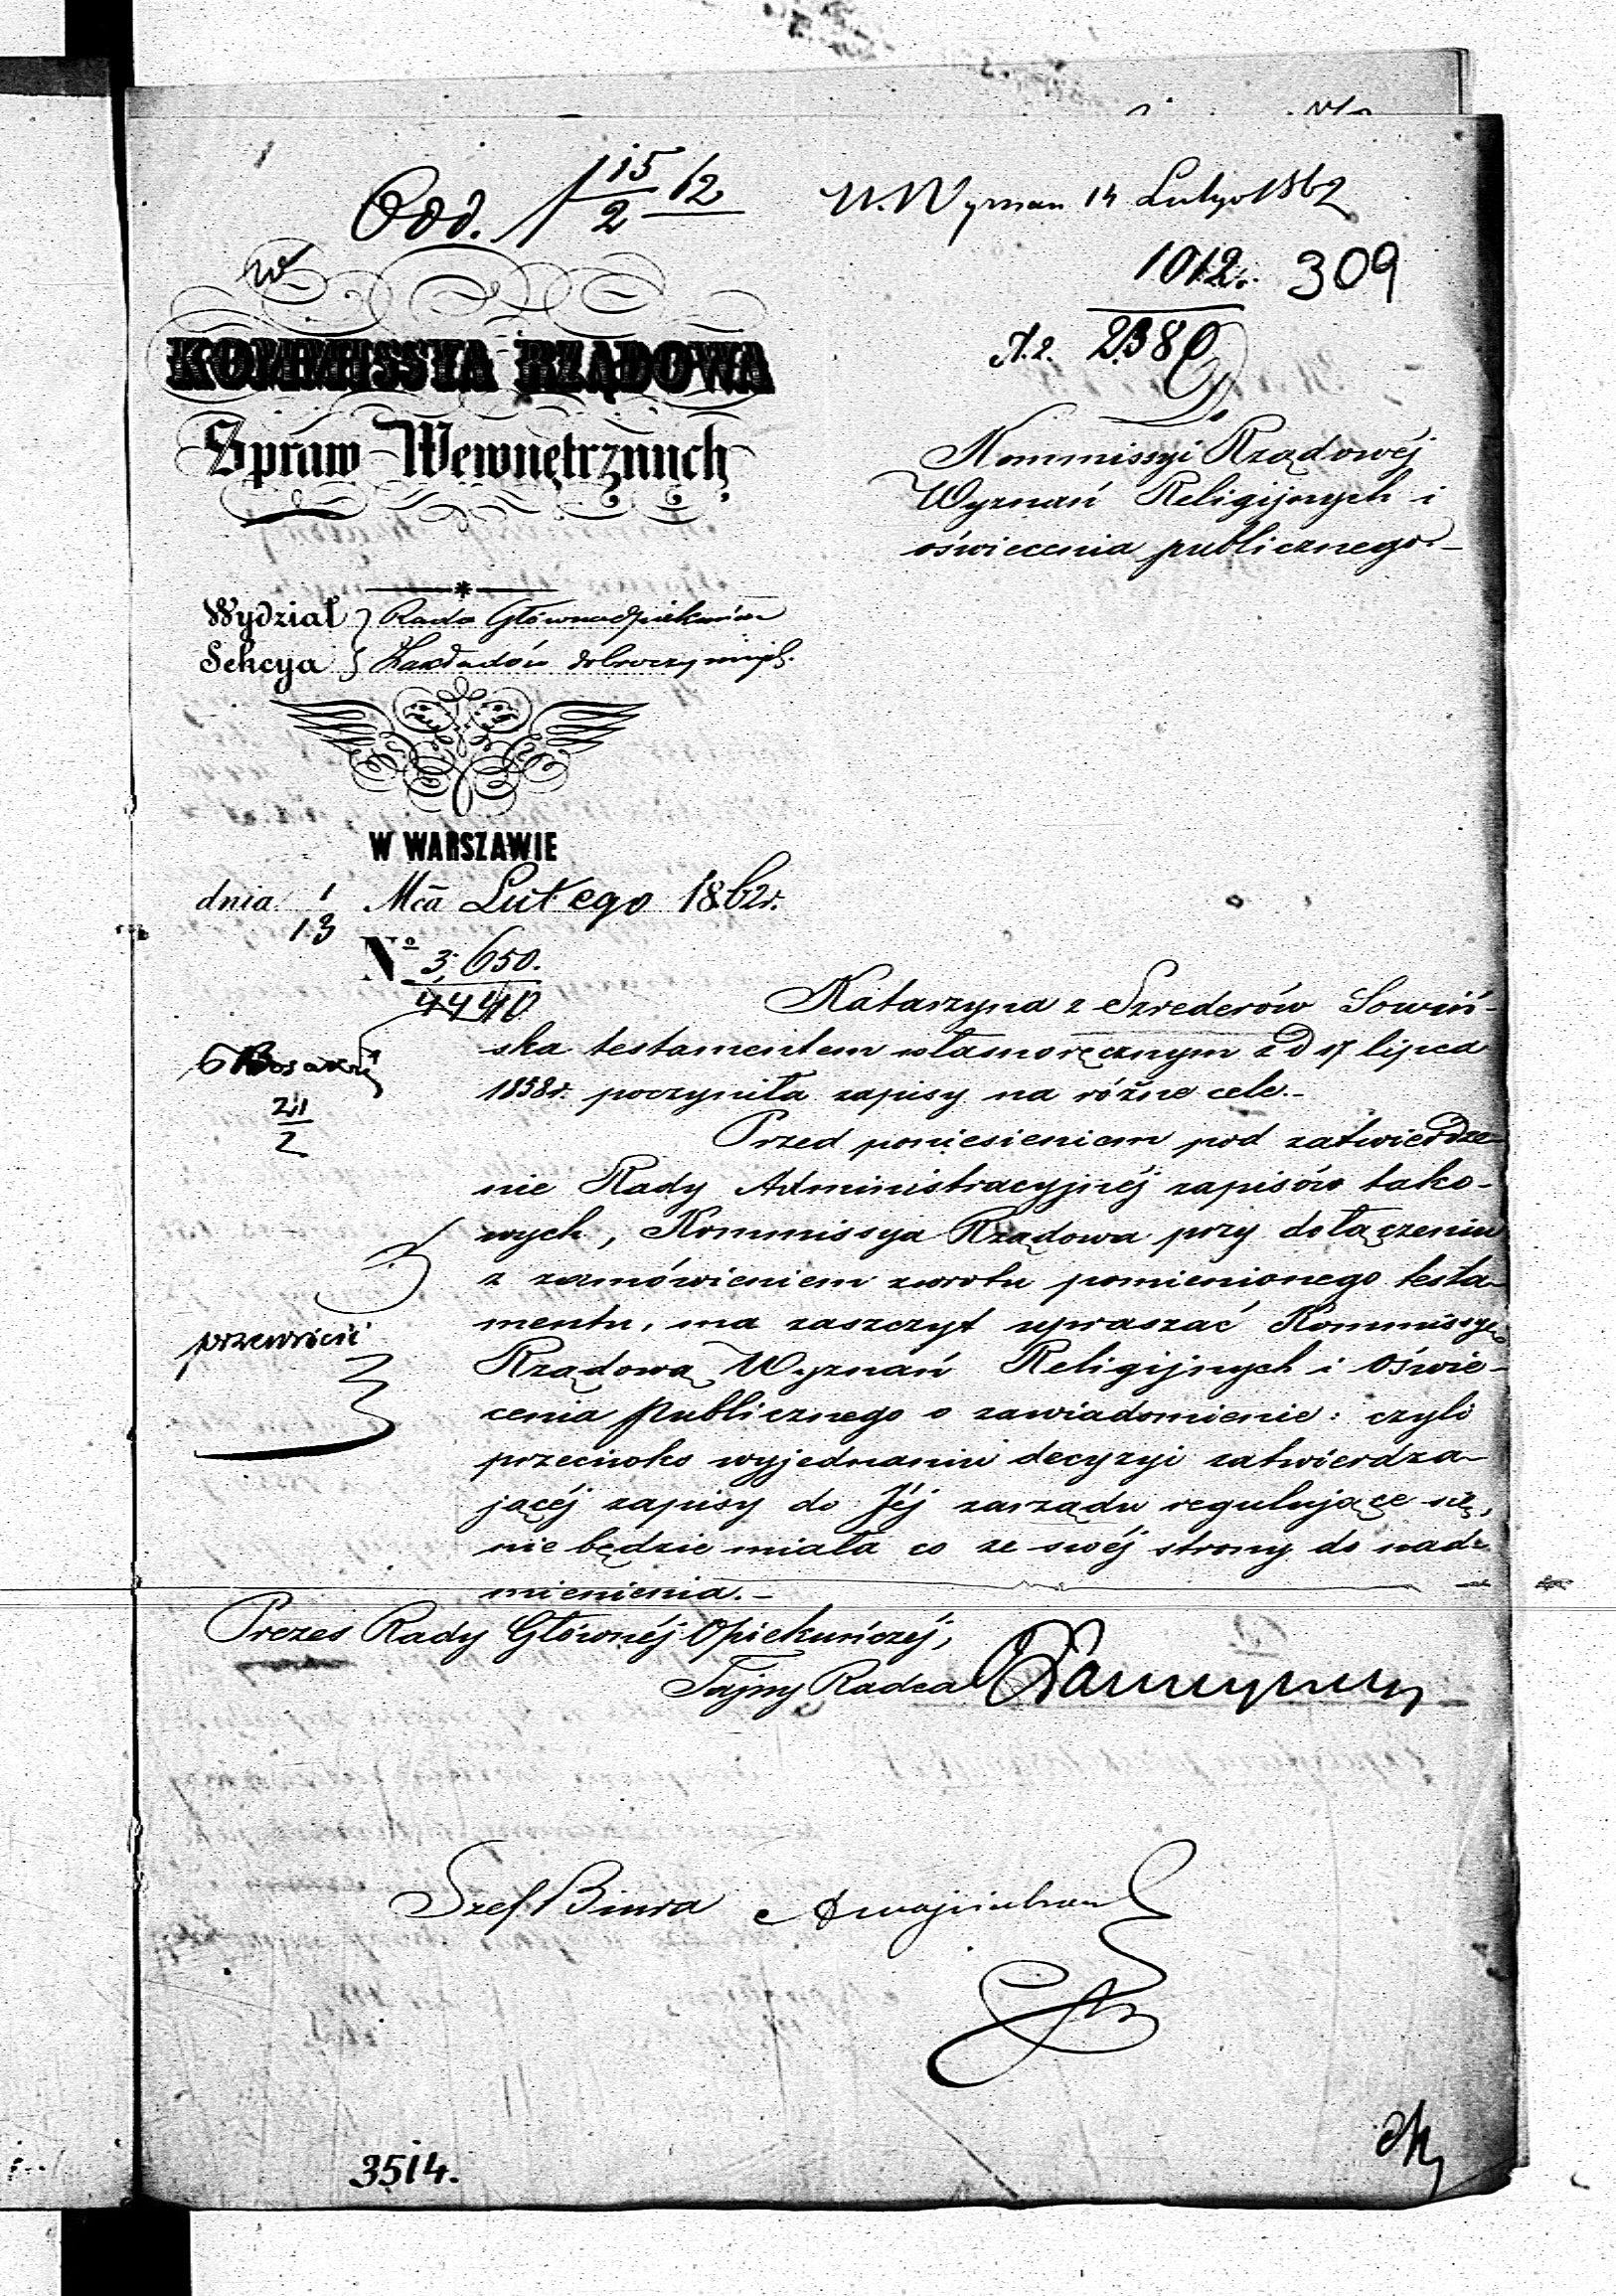 Odd. 15/2 62
W. Wyznan 14 Lutego 1862
1012. 309
2380
KOMMISSYA RZĄDOWA
Spraw Wewnętrznych
Do
Kommissyi Rządowéj
Wyznań Religijnych i
oświecenia publicznego.-
Wydział } Rada Główna Opiekuńcza
Sekcya } Zakładów dobroczynnych.
W WARSZAWIE
dnia 1/13 Mca Lutego 1862r.
No 3,650.
4440
Katarzyna z Szrederów Sowiń-
ska testamentem własnoręcznym z d 17 lipca
1858r. poczyniła zapisy na różne cele.-
Przed poniesieniem pod zatwierdze-
nie Rady Administracyjnéj zapisów tako-
wych, Kommissya Rządowa przy dołączeniu
z zamówieniem zwrotu pomienionego testa-
mentu, ma zaszczyt upraszać Kommissyę
Rządową Wyznań Religijnych i Oświe-
cenia Publicznego o zawiadomienie: czyli
przeciwko wyjednaniu decyzyi zatwierdza-
jącéj zapisy do Jéj zarządu regulujące się,
nie będzie miała co ze swéj strony do nad-
mienienia.-
przewrócić
Prezes Rady Głównéj Opiekuńczéj,
Tajny Radca
Szef Biura
3514.